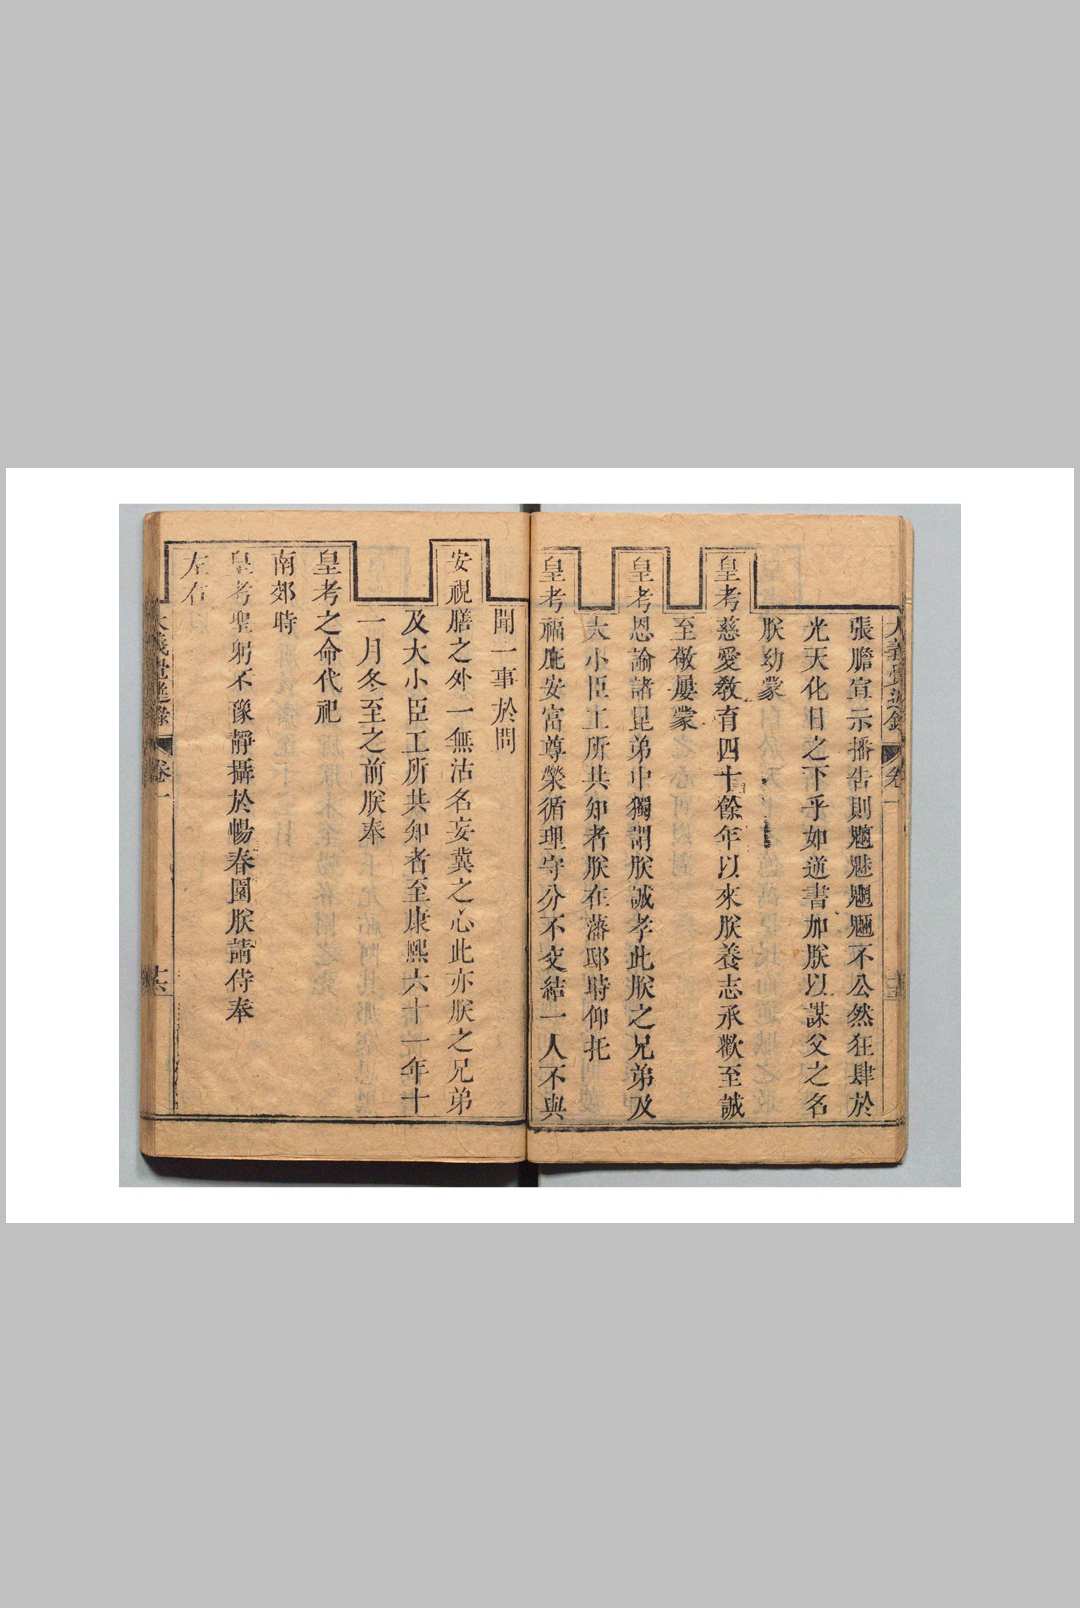 大義覺迷錄 卷一
張膽宣示播告則魑魅魍魎不公然狂肆於
光天化日之下乎如逆書加朕以謀父之名
朕幼蒙
皇考慈愛敎育四十餘年以來朕養志承歡至誠
至敬屢蒙
皇考恩諭諸昆弟中獨謂朕誠孝此朕之兄弟及
大小臣工所共知者朕在藩邸時仰托
皇考福庇安富尊榮循理守分不交結一人不與
聞一事於問
安視膳之外一無沽名妄冀之心此亦朕之兄弟
及大小臣工所共知者至康熙六十一年十
一月冬至之前朕奉
皇考之命代祀
南郊時
皇考聖躬不豫靜攝於暢春園朕請侍奉
左右
大義覺迷錄 卷一